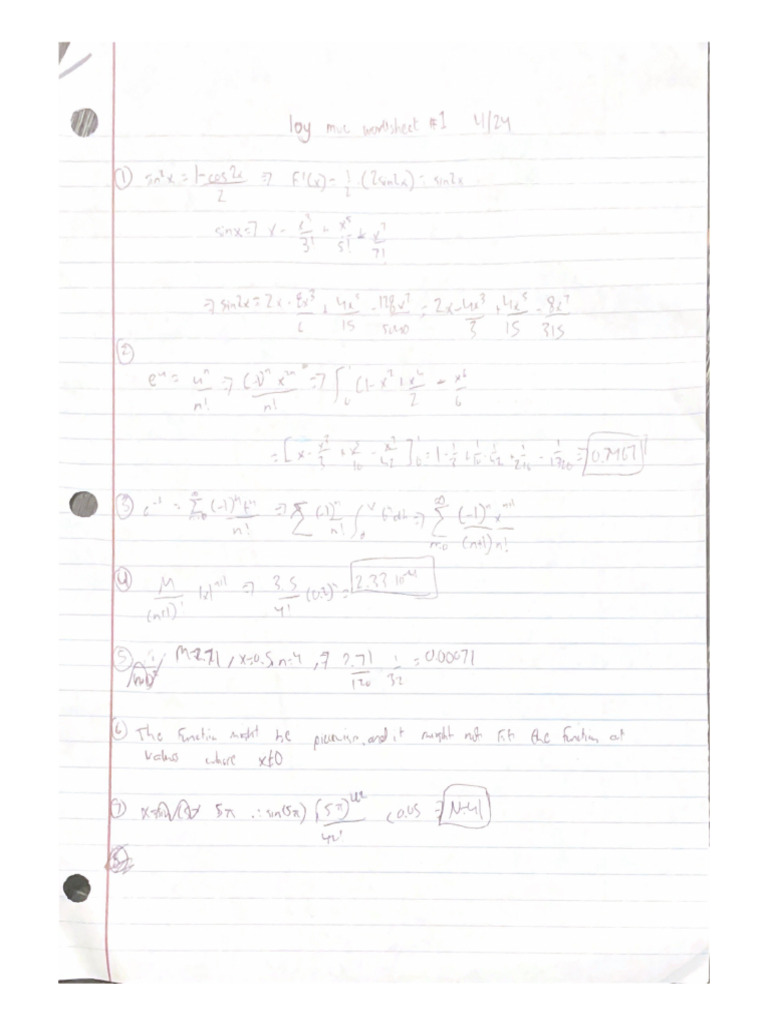 loy mvc worksheet #1 4/24
① sin²x = 1-cos2x/2 ⇒ F'(x) = 1/2 · (2sin2x) = sin2x
sinx ⇒ x - x³/3! + x⁵/5! x⁷/7!
⇒ sin2x = 2x - 8x³/6 + 4x⁵/15 - 128x⁷/5040 = 2x - 4x³/3 + 4x⁵/15 - 8x⁷/315
②
eᵘ = uⁿ/n! ⇒ (-1)ⁿ x²ⁿ/n! ⇒ ∫₀¹ (1 - x² + x⁴/2 - x⁶/6
= [x - x³/3 + x/10 - x⁷/42]₀¹ = 1 - 1/3 + 1/10 - 1/42 + 1/216 - 1/1320 =
③ e⁻ᵗ = ∑ (-1)ⁿtⁿ/n! ⇒ ∑ (-1)ⁿ/n! ∫ tⁿdt ⇒ ∑ (-1)ⁿxⁿ⁺¹/(n+1)n!
④ M/(n+1)! |x|ⁿ⁺¹ ⇒ 3.5/4! (0.2) = 2.33 · 10⁻⁴
⑤ M=2.71, x=0.5, n=4, ⇒ 2.71/120 · 1/32 = 0.00071
⑥ The function might be piecewise, and it might not fit the function at
values where x≠0
⑦ 5π ∴ sin(5π) (5π)⁴²/42! < 0.05 ⇒ N=41